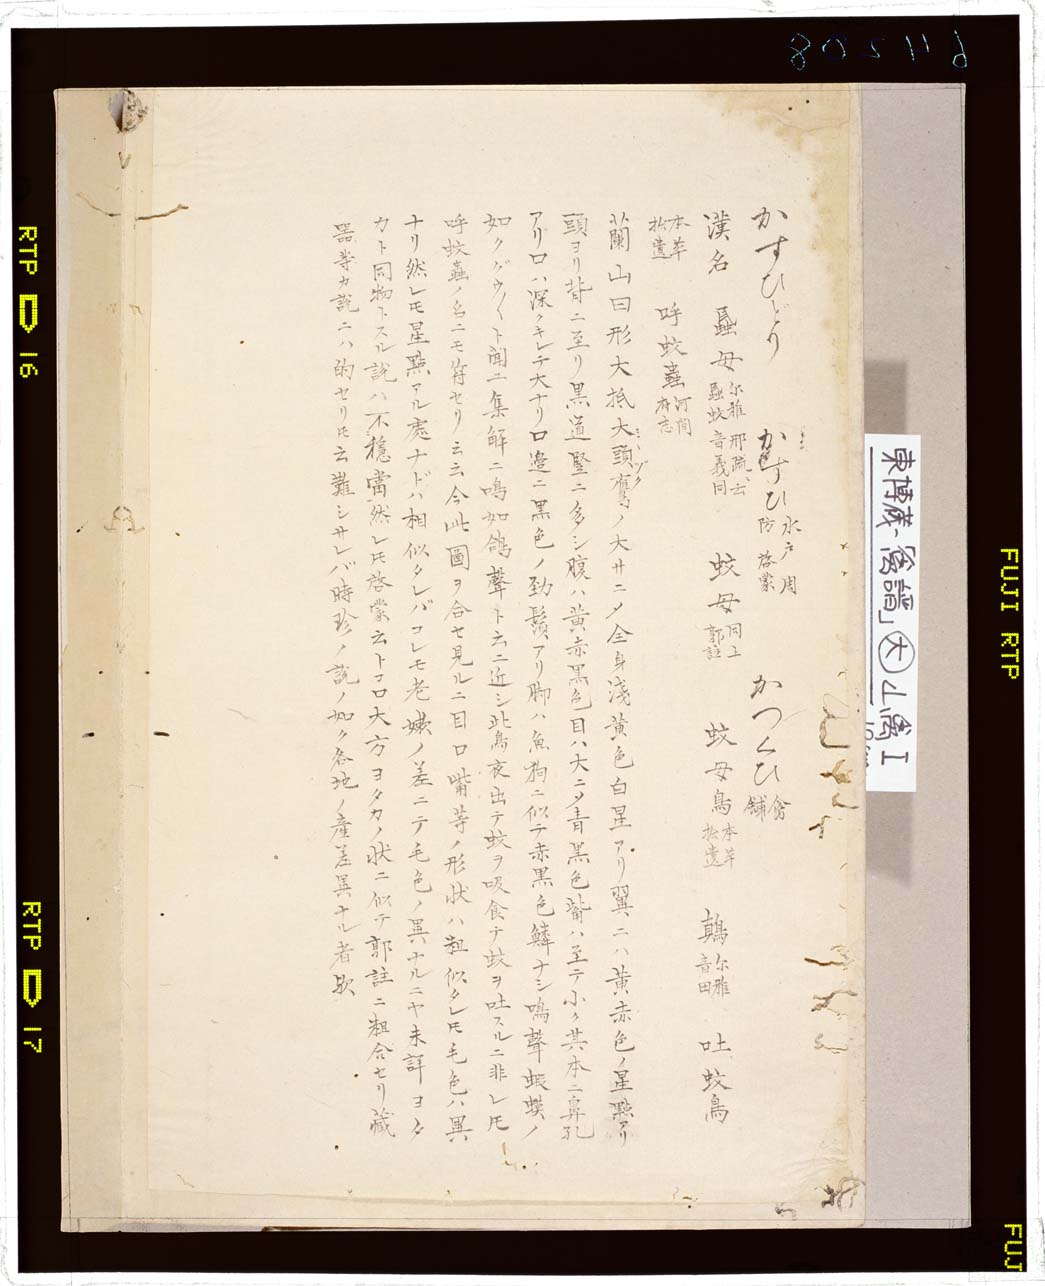 かすひどり　かすひ 水戸周防 啓蒙　かつくひ 會舗
漢名　蟁母 尓雅邢疏云蟁蚊音義同　蚊母 同上郭註　蚊母鳥 本草拾遺　鷏 尓雅音田　吐蚊鳥
本草拾遺　呼蚊蟲 河間府志
蘭山曰形大抵大頭鷹ノ大サニ〆全身淺黄色白星アリ翼ニハ黄赤色ノ星點アリ
頭ヨリ背ニ至リ黒道竪ニ多シ腹ハ黄赤黒色目ハ大ニ〆青黒色觜ハ至テ小ク其本ニ鼻孔
アリ口ハ深クキレテ大ナリ口邉ニ黒色ノ勁鬚アリ脚ハ魚狗ニ似テ赤黒色鱗ナシ鳴聲蝦蟆ノ
如クグウ〱ト聞ユ集解ニ鳴如鴿聲ト云ニ近シ此鳥夜出テ蚊ヲ吸食テ蚊ヲ吐スルニ非レ𪜈
呼蚊蟲ノ名ニモ符セリ云云今此圖ヲ合セ見ルニ目口嘴等ノ形状ハ粗似タレ𪜈毛色ハ異
ナリ然レ𪜈星點アル處ナドハ相似タレバコレモ老嫰ノ差ニテ毛色ノ異ナルニヤ未詳ヨタ
カト同物トスル説ハ不穏當然レ𪜈啓蒙云トコロ大方ヨタカノ状ニ似テ郭註ニ粗合セリ藏
器等カ説ニハ的セリ𪜈云難シサレバ時珍ノ説ノ如ク各地ノ産差異ナル者歟
東博蔵「禽譜」大 山禽 I
RTP 16
RTP 17
FUJI RTP
FUJ